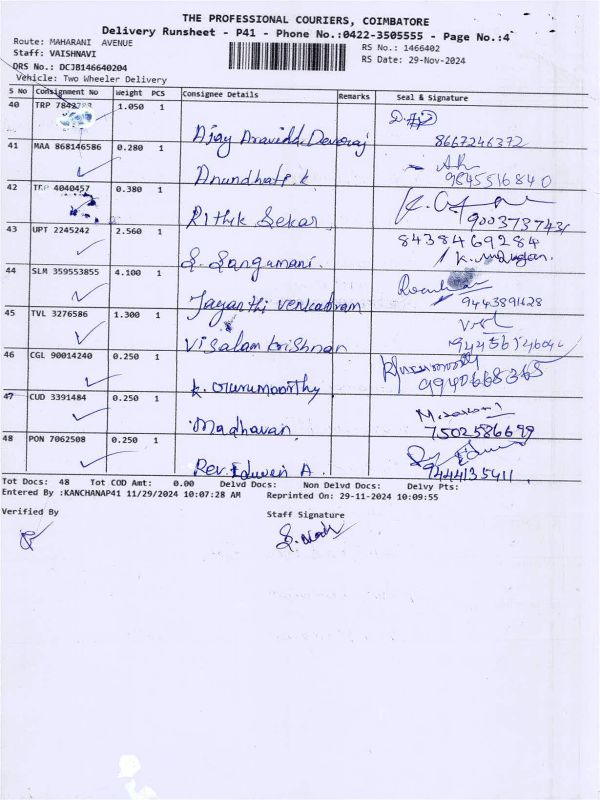 THE PROFESSIONAL COURIERS, COIMBATORE
Delivery Runsheet - P41 - Phone No.:0422-3505555 - Page No.:4
Route: MAHARANI AVENUE
RS No.: 1466402
Staff: VAISHNAVI
RS Date: 29-Nov-2024
DRS No.: DCJB146640204
Vehicle: Two Wheeler Delivery
S No Consignment No Weight PCS Consignee Details Remarks Seal & Signature
40 TRP 1.050 1
Ajay Aravindd Devaraj 8667246372
41 MAA 868146586 0.280 1
Anundhati. K 9845516840
42 TRP 4040457 0.380 1
Rithik Sekar
43 UPT 2245242 2.560 1 8438469284
S. Sangumani. K. Murugan.
44 SLM 359553855 4.100 1
Jayanthi Venkatram 9443891628
45 TVL 3276586 1.300 1
Visalam krishnan
46 CGL 90014240 0.250 1
K. Gurumoorthy 9940668365
47 CUD 3391484 0.250 1
Madhavan 7502586699
48 PON 7062508 0.250 1
Rev. Edwin A. 9444135411
Tot Docs: 48 Tot COD Amt: 0.00 Delvd Docs: Non Delvd Docs: Delvy Pts:
Entered By :KANCHANAP41 11/29/2024 10:07:28 AM Reprinted On: 29-11-2024 10:09:55
Verified By Staff Signature